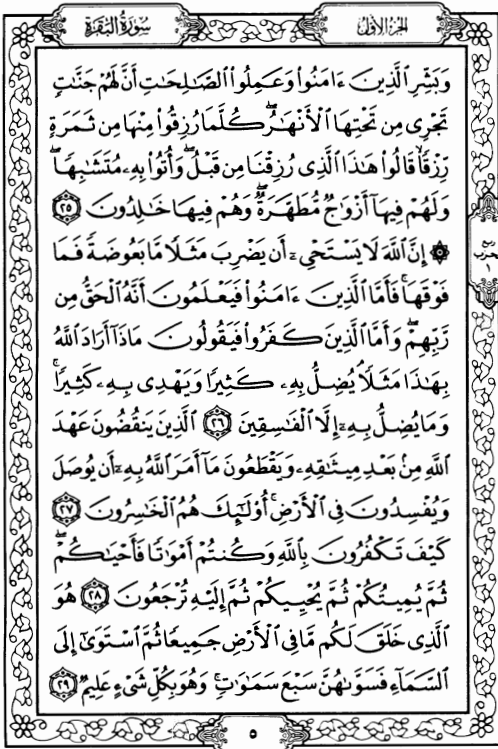 سُورَةُ البَقَرَةِ
الجُزءُ الأوّلُ
وَبَشِّرِ الَّذِينَ ءَامَنُوا۟ وَعَمِلُوا۟ الصَّـٰلِحَـٰتِ أَنَّ لَهُمْ جَنَّـٰتٍ
تَجْرِى مِن تَحْتِهَا الْأَنْهَـٰرُ ۖ كُلَّمَا رُزِقُوا۟ مِنْهَا مِن ثَمَرَةٍ
رِّزْقًا ۙ قَالُوا۟ هَـٰذَا الَّذِى رُزِقْنَا مِن قَبْلُ ۖ وَأُتُوا۟ بِهِۦ مُتَشَـٰبِهًا ۖ
وَلَهُمْ فِيهَآ أَزْوَٰجٌ مُّطَهَّرَةٌ ۖ وَهُمْ فِيهَا خَـٰلِدُونَ ٢٥
۞ إِنَّ اللَّهَ لَا يَسْتَحْىِۦٓ أَن يَضْرِبَ مَثَلًا مَّا بَعُوضَةً فَمَا
فَوْقَهَا ۚ فَأَمَّا الَّذِينَ ءَامَنُوا۟ فَيَعْلَمُونَ أَنَّهُ الْحَقُّ مِن
رَّبِّهِمْ ۖ وَأَمَّا الَّذِينَ كَفَرُوا۟ فَيَقُولُونَ مَاذَآ أَرَادَ اللَّهُ
بِهَـٰذَا مَثَلًا ۘ يُضِلُّ بِهِۦ كَثِيرًا وَيَهْدِى بِهِۦ كَثِيرًا ۚ
وَمَا يُضِلُّ بِهِۦٓ إِلَّا الْفَـٰسِقِينَ ٢٦ الَّذِينَ يَنقُضُونَ عَهْدَ
اللَّهِ مِنۢ بَعْدِ مِيثَـٰقِهِۦ وَيَقْطَعُونَ مَآ أَمَرَ اللَّهُ بِهِۦٓ أَن يُوصَلَ
وَيُفْسِدُونَ فِى الْأَرْضِ ۚ أُو۟لَـٰٓئِكَ هُمُ الْخَـٰسِرُونَ ٢٧
كَيْفَ تَكْفُرُونَ بِاللَّهِ وَكُنتُمْ أَمْوَٰتًا فَأَحْيَـٰكُمْ ۖ
ثُمَّ يُمِيتُكُمْ ثُمَّ يُحْيِيكُمْ ثُمَّ إِلَيْهِ تُرْجَعُونَ ٢٨ هُوَ
الَّذِى خَلَقَ لَكُم مَّا فِى الْأَرْضِ جَمِيعًا ثُمَّ اسْتَوَىٰٓ إِلَى
السَّمَآءِ فَسَوَّىٰهُنَّ سَبْعَ سَمَـٰوَٰتٍ ۚ وَهُوَ بِكُلِّ شَىْءٍ عَلِيمٌ ٢٩
ربع
الحزب
١
٥